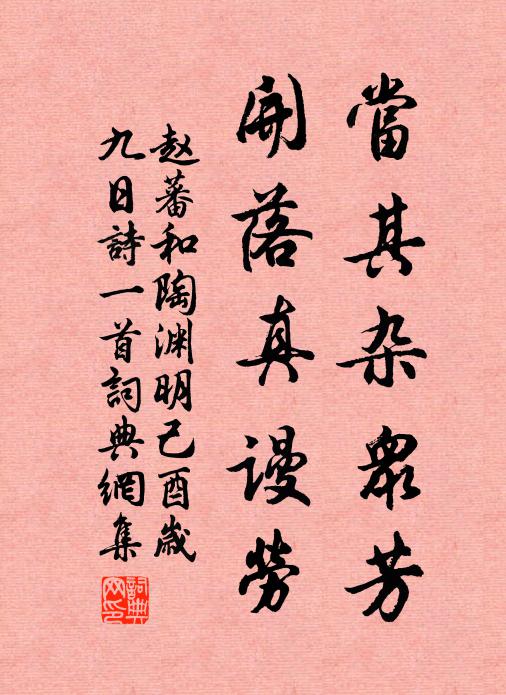 當其杂眾芳
開落真謾勞
赵蕃和陶渊明己酉歲
九日詩一首詞典網集
詞典網印